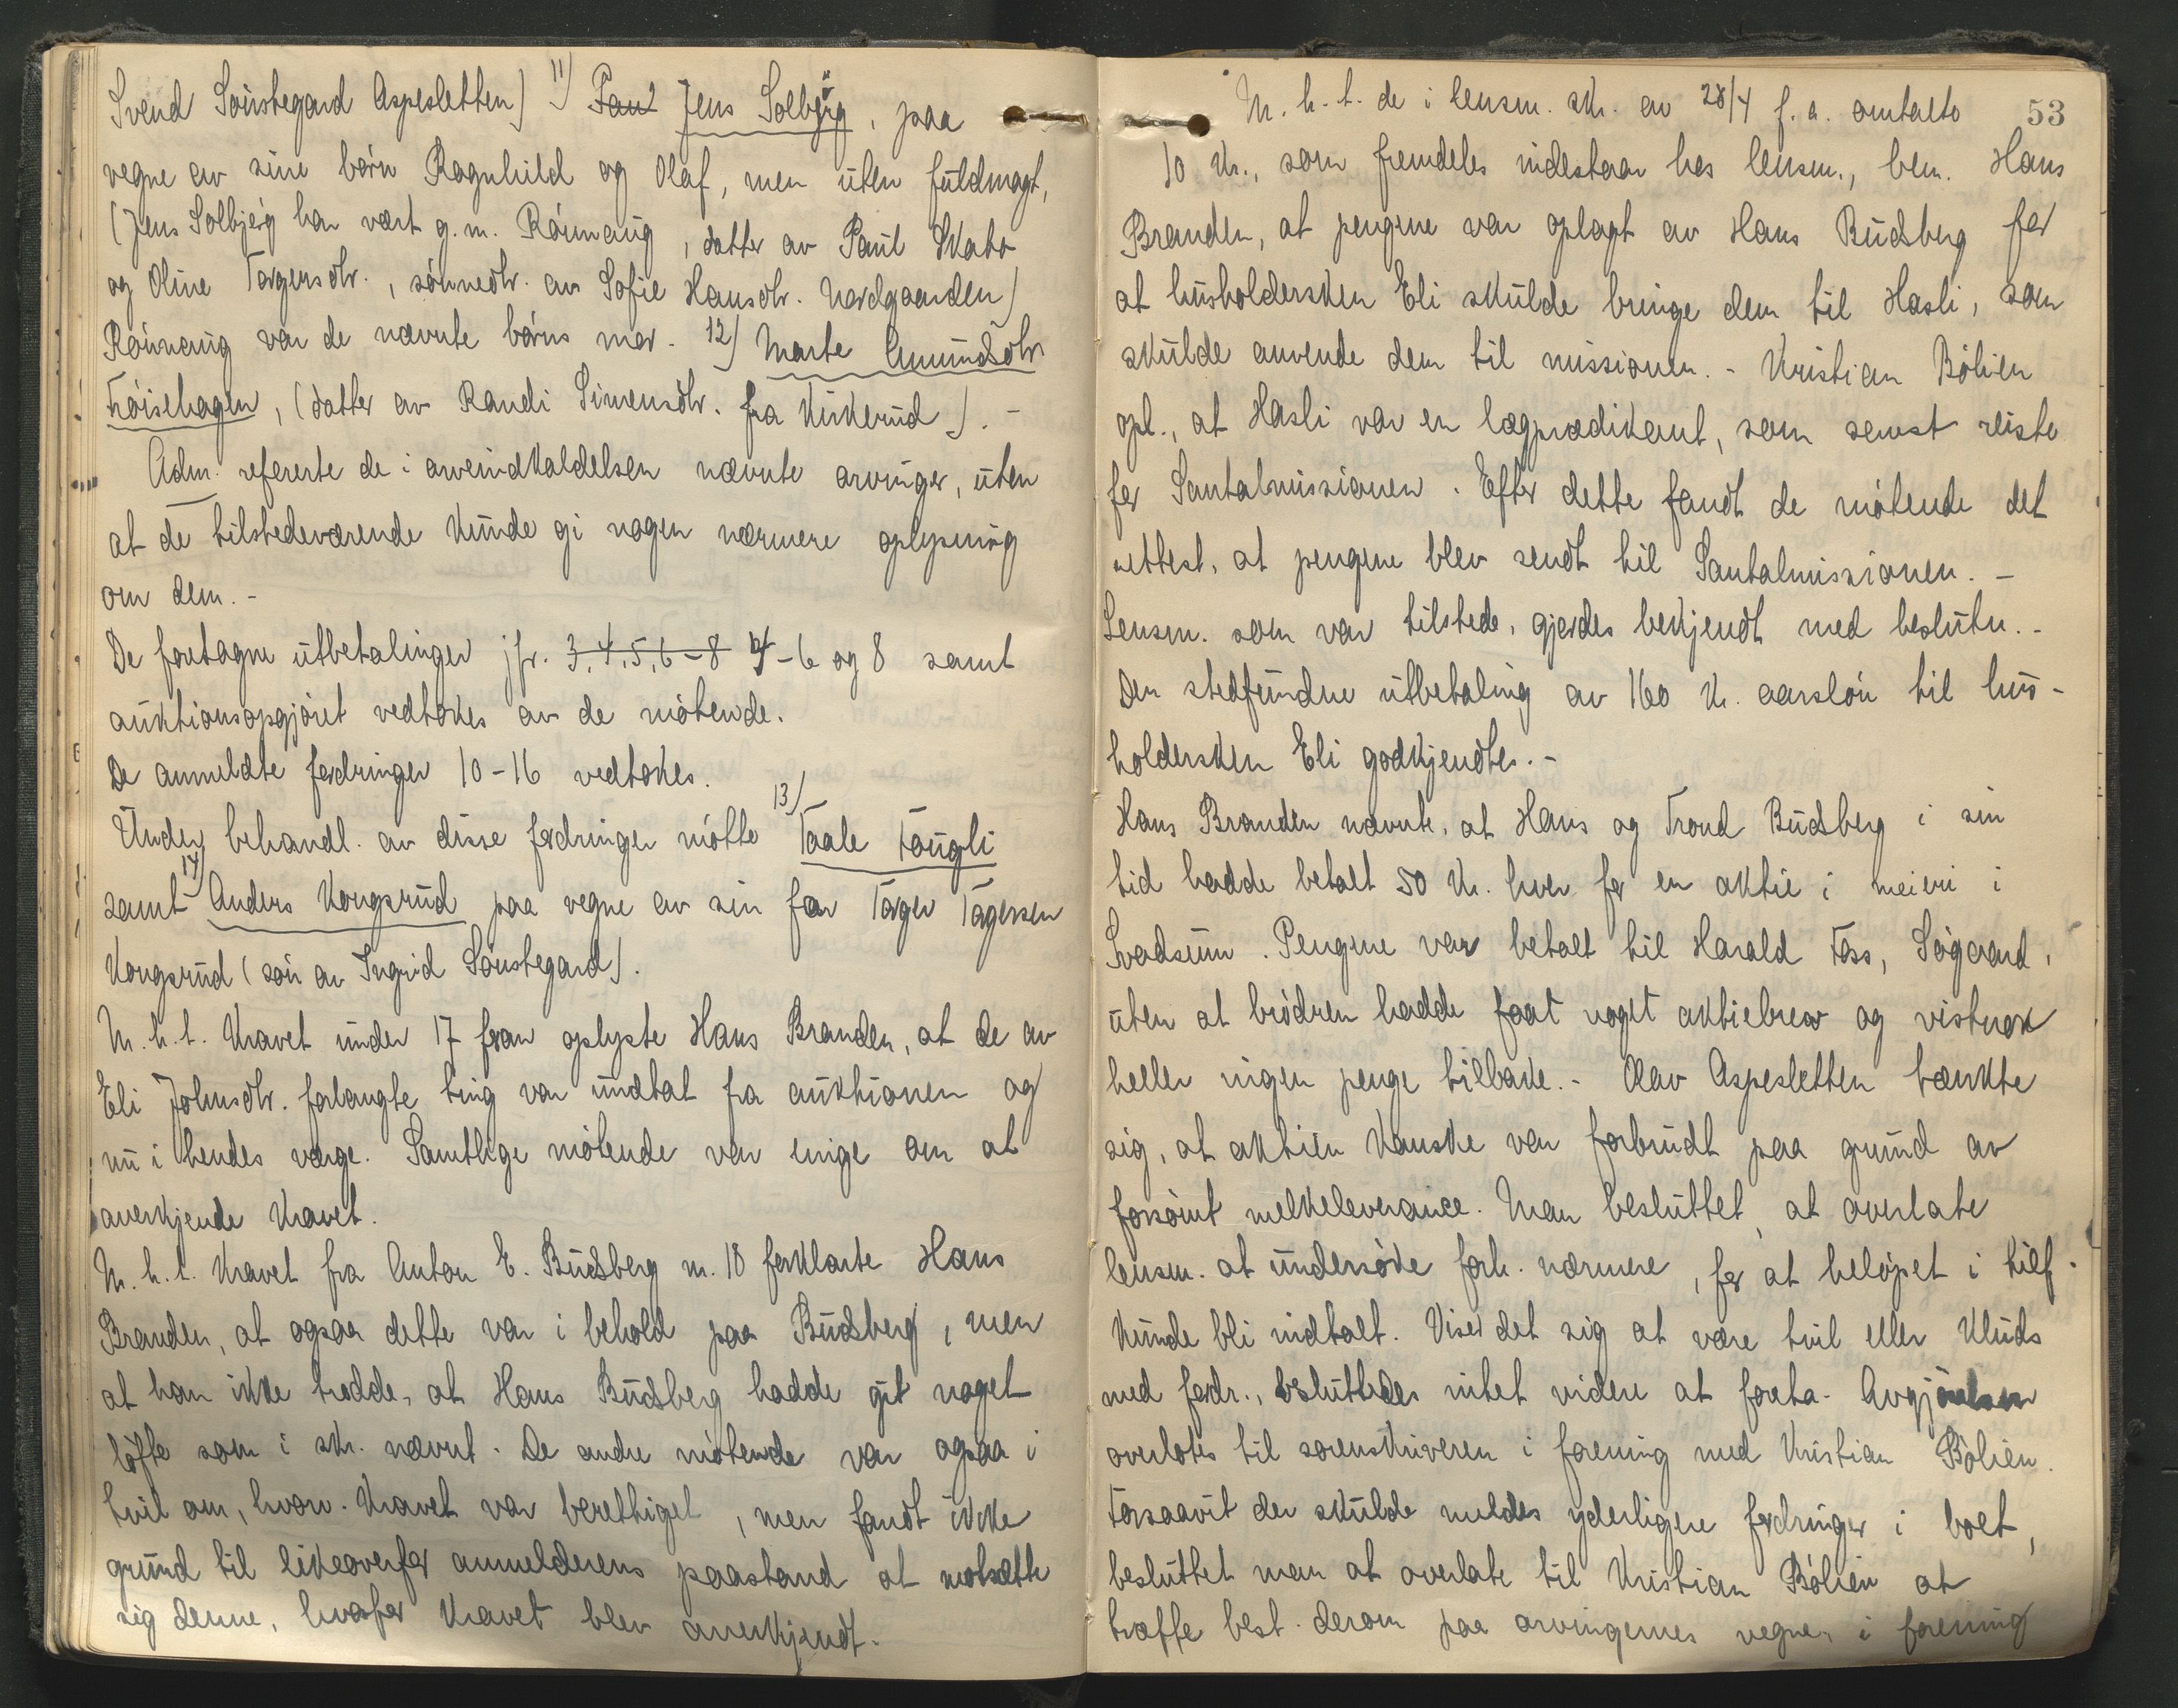 Svend Sønstegard Aspesletten) 11) Paul Jens Solbjørg, paa
vegne av sine børn Ragnhild og Olaf, men uten fuldmagt,
(Jens Solbjørg har vært g.m. Rønnaug, datter av Paul Skabo
og Oline Torgersdtr., sønnedtr. av Sofie Hansdtr. Nordgaarden)
Rønnaug var de nævnte børns mor. 12) Marte Amundsdtr
Frøisehagen, (datter av Randi Simensdtr. fra Kirkerud). -
Adm. refererte de i arveindkaldelsen nævnte arvinger, uten
at de tilstedeværende kunde gi nogen nærmere oplysning
om dem. -
De foretagne utbetalinger jfr. 3, 4, 5, 6 - 8 4 - 6 og 8 samt
auktionsopgjøret vedtokes av de møtende.
De anmeldte fordringer 10 - 16 vedtokes.
Under behandl. av disse fordringer møtte 13) Taale Fougli
samt 14) Anders Kongsrud paa vegne av sin far Torger Torgersen
Kongsrud (søn av Ingrid Sønstegard).
M.h.t. kravet under 17 foran oplyste Hans Branden, at de av
Eli Johnsdtr. forlangte ting var undtat fra auktionen og
nu i hendes værge. Samtlige møtende var enige om at
anerkjende kravet.
M.h.t. kravet fra Anton E. Budsberg nr. 18 forklarte Hans
Branden, at ogsaa dette var i behold paa Budsberg, men
at han ikke trodde, at Hans Budsberg hadde git noget
løfte som i skr. nævnt. De andre møtende var ogsaa i
tvil om, hvorv. kravet var berettiget, men fandt ikke
grund til likeoverfor anmelderens paastand at motsætte
sig denne, hvorfor kravet blev anerkjendt.
53
M.h.t. de i lensm. skr. av 28/4 f.a. omtalte
10 kr., som fremdeles indestaar hos lensm., bem. Hans
Branden, at pengene var oplagt av Hans Budsberg for
at husholdersken Eli skulde bringe dem til Hasli, som
skulde anvende dem til missionen. - Kristian Bølien
opl., at Hasli var en lægprædikant, som senest reiste
for Santalmissionen. Efter dette fandt de møtende det
rettest, at pengene blev sendt til Santalmissionen. -
Lensm. som var tilstede, gjordes bekjendt med beslutn. -
Den stedfundne utbetaling av 160 kr. aarsløn til hus-
holdersken Eli godkjendtes. -
Hans Branden nævnte, at Hans og Trond Budsberg i sin
tid hadde betalt 50 kr. hver for en aktie i meieri i
Svadsum. Pengene var betalt til Harald Foss, Søgaard,
uten at brødren hadde faat noget aktiebrev og vistnok
heller ingen penge tilbake. - Olav Aspesletten tænkte
sig, at aktien kanske var forbrudt paa grund av
forsømt melkeleverance. Man besluttet, at overlate
lensm. at undersøke forh. nærmere, for at beløpet i tilf.
kunde bli indtalt. Viser det sig at være tvil eller kluds
med fordr., besluttedes intet videre at foreta. Avgjørelsen
overlotes til sorenskriveren i forening med Kristian Bølien.
Forsaavit der skulde meldes yderligere fordringer i boet,
besluttet man at overlate til Kristian Bølien at
træffe best. derom paa arvingernes vegne, i forening